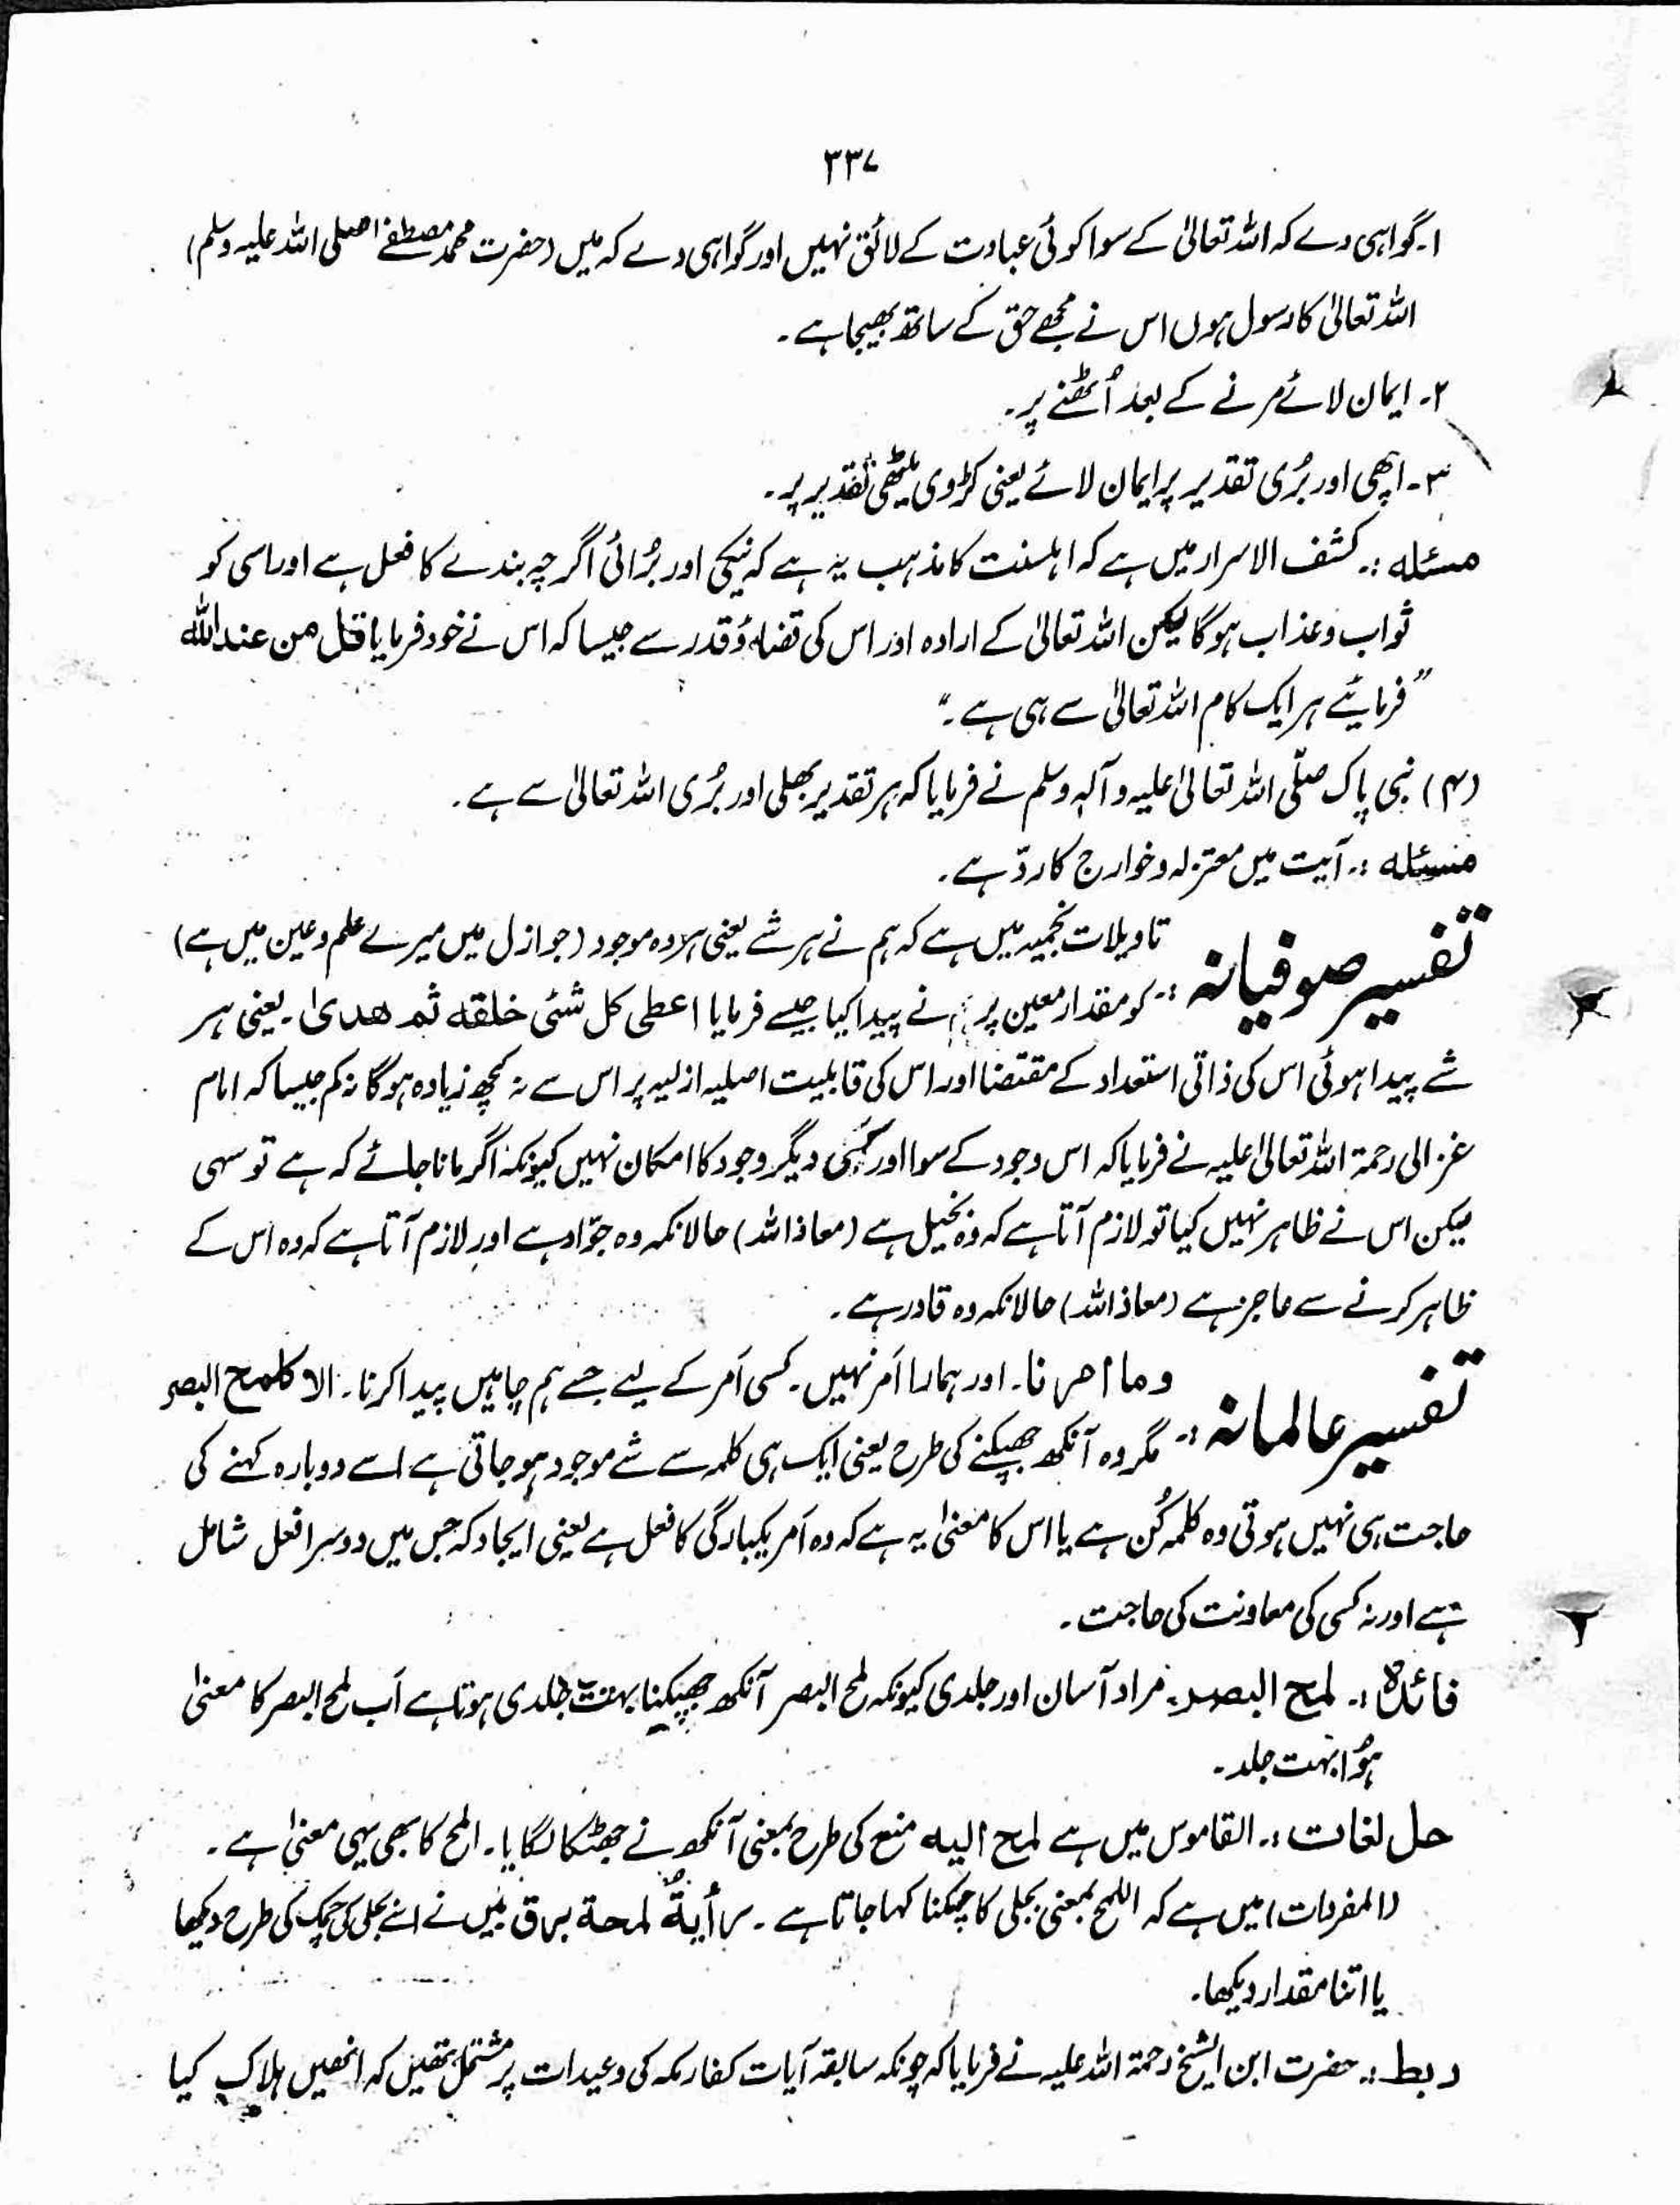 ۳۳۷
۱۔ گواہی دے کہ اللہ تعالیٰ کے سوا کوئی عبادت کے لائق نہیں اور گواہی دے کہ میں (حضرت محمد مصطفےٰ صلی اللہ علیہ وسلم)
اللہ تعالیٰ کا رسول ہوں اس نے مجھے حق کے ساتھ بھیجا ہے۔
۲۔ ایمان لائے مرنے کے بعد اُٹھنے پر۔
۳۔ اچھی اور بُری تقدیر پر ایمان لائے یعنی کڑوی میٹھی تقدیر پر۔
مسئلہ :۔ کشف الاسرار میں ہے کہ اہلسنت کا مذہب یہ ہے کہ نیکی اور بُرائی اگرچہ بندے کا فعل ہے اور اسی کو
ثواب و عذاب ہوگا لیکن اللہ تعالیٰ کے ارادہ اور اس کی قضاء و قدر سے جیسا کہ اس نے خود فرمایا قل من عند اللہ
”فرمائیے ہر ایک کام اللہ تعالیٰ سے ہی ہے۔“
(۴) نبی پاک صلّی اللہ تعالیٰ علیہ وآلہٖ وسلم نے فرمایا کہ ہر تقدیر بھلی اور بُری اللہ تعالیٰ سے ہے۔
مسئلہ :۔ آیت میں معتزلہ و خوارج کا ردّ ہے۔
تفسیر صوفیانہ :۔ تاویلات نجمیہ میں ہے کہ ہم نے ہر شے یعنی ہر وہ موجود (جو ازل میں میرے علم و عین میں ہے)
کو مقدار معین پر نے پیدا کیا جیسے فرمایا اعطی کل شئی خلقہ ثم ھدیٰ۔ یعنی ہر
شے پیدا ہوئی اس کی ذاتی استعداد کے مقتضا اور اس کی قابلیت اصلیہ ازلیہ پر اس سے نہ کچھ زیادہ ہوگا نہ کم جیسا کہ امام
غزالی رحمۃ اللہ تعالیٰ علیہ نے فرمایا کہ اس وجود کے سوا اور کسی دیگر وجود کا امکان نہیں کیونکہ اگر مانا جائے کہ ہے تو سہی
لیکن اس نے ظاہر نہیں کیا تو لازم آتا ہے کہ وہ بخیل ہے (معاذ اللہ) حالانکہ وہ جوّاد ہے اور لازم آتا ہے کہ وہ اس کے
ظاہر کرنے سے عاجز ہے (معاذ اللہ) حالانکہ وہ قادر ہے۔
تفسیر عالمانہ :۔ وما امرنا۔ اور ہمارا اَمر نہیں۔ کسی اَمر کے لیے جسے ہم چاہیں پیدا کرنا۔ الا کلمح البصر
مگر وہ آنکھ جھپکنے کی طرح یعنی ایک ہی کلمہ سے شے موجود ہو جاتی ہے اسے دوبارہ کہنے کی
حاجت ہی نہیں ہوتی وہ کلمہ کُن ہے یا اس کا معنیٰ یہ ہے کہ وہ اَمر یکبارگی کا فعل ہے یعنی ایجاد کہ جس میں دوسرا فعل شامل
ہے اور نہ کسی کی معاونت کی حاجت۔
فائدہ :۔ لمح البصر سے مراد آسان اور جلدی کیونکہ لمح البصر آنکھ جھپکنا بہت جلدی ہوتا ہے اَب لمح البصر کا معنیٰ
ہوُا بہت جلد۔
حل لغات :۔ القاموس میں ہے لمح الیہ منع کی طرح بمعنی آنکھ نے جھٹکا لگایا۔ المح کا بھی یہی معنیٰ ہے۔
(المفردات) میں ہے کہ اللمح بمعنی بجلی کا چمکنا کہا جاتا ہے۔ رأیتہٗ لمحۃ برق میں نے اسے بجلی کی چمک کی طرح دیکھا
یا اتنا مقدار دیکھا۔
ربط :۔ حضرت ابن الشیخ رحمۃ اللہ علیہ نے فرمایا کہ چونکہ سابقہ آیات کفار مکہ کی وعیدات پر مشتمل تھیں کہ انھیں ہلاک کیا